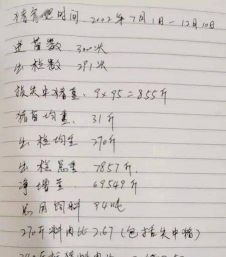 猪育肥时间 2022年7月1日-12月10日
进苗数 300头
出栏数 291头
损失中猪重: 9×95=855斤
猪苗均重: 31斤
出栏均重 270斤
出栏总重 7857斤
净增重 69549斤
总用饲料 94吨
270斤料肉比 2.67 (包括失中猪)